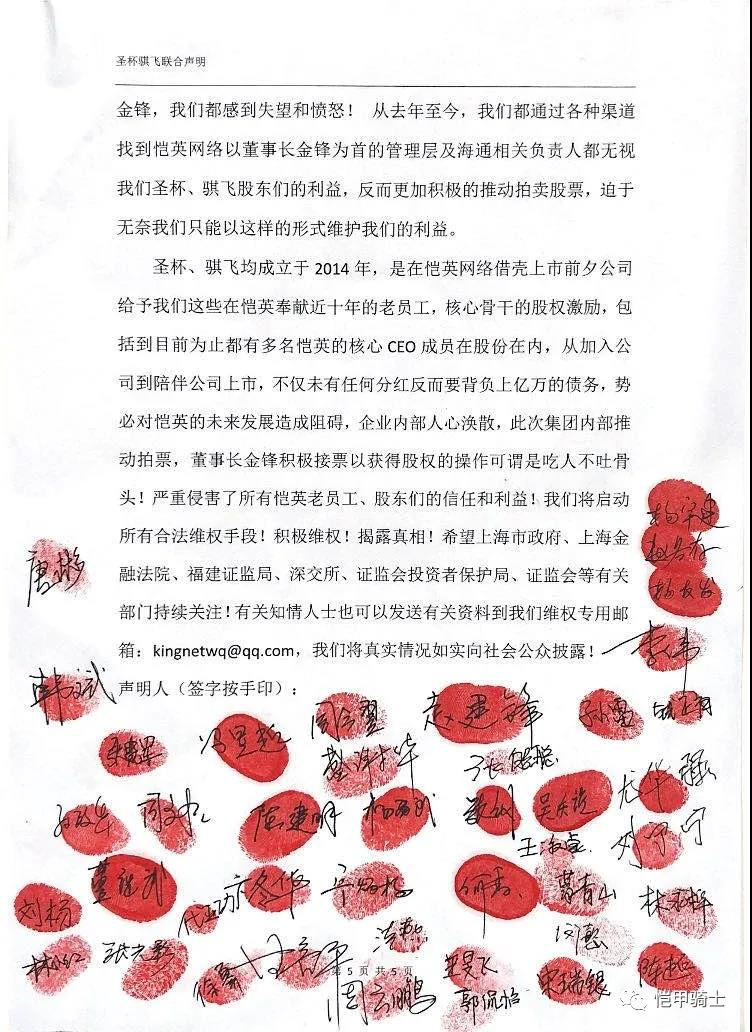 圣杯骐飞联合声明
金锋，我们都感到失望和愤怒！ 从去年至今，我们都通过各种渠道
找到恺英网络以董事长金锋为首的管理层及海通相关负责人都无视
我们圣杯、骐飞股东们的利益，反而更加积极的推动拍卖股票，迫于
无奈我们只能以这样的形式维护我们的利益。
圣杯、骐飞均成立于 2014 年，是在恺英网络借壳上市前夕公司
给予我们这些在恺英奉献近十年的老员工，核心骨干的股权激励，包
括到目前为止都有多名恺英的核心 CEO 成员在股份在内，从加入公
司到陪伴公司上市，不仅未有任何分红反而要背负上亿万的债务，势
必对恺英的未来发展造成阻碍，企业内部人心涣散，此次集团内部推
动拍票，董事长金锋积极接票以获得股权的操作可谓是吃人不吐骨
头！严重侵害了所有恺英老员工、股东们的信任和利益！我们将启动
所有合法维权手段！积极维权！揭露真相！希望上海市政府、上海金
融法院、福建证监局、深交所、证监会投资者保护局、证监会等有关
部门持续关注！有关知情人士也可以发送有关资料到我们维权专用邮
箱：kingnetwq@qq.com，我们将真实情况如实向社会公众披露！
声明人（签字按手印）：
唐彬
韩文斌
孙勇
陈建明
吴庆
刘宁宁
董龙武
何勇
葛青山
刘杨
林永辉
张光影
徐勇
周云鹏
郭侃怡
宋瑞银
陈超
第 5 页 共 5 页
恺甲骑士